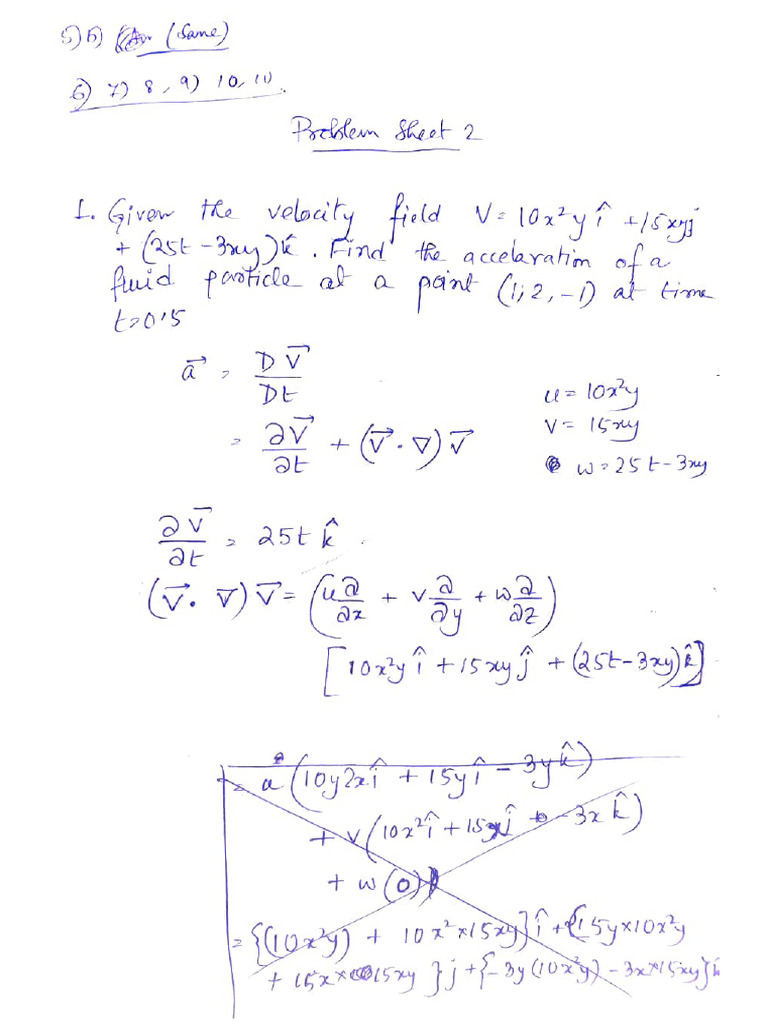 5) b) (Same)
6) 7) 8, 9) 10, 11)
Problem Sheet 2
1. Given the velocity field V = 10x²y î + 15xyj
+ (25t - 3xy)k̂. Find the accelaration of a
fluid particle at a point (1, 2, -1) at time
t=0.5
a⃗ = DV⃗/Dt
u = 10x²y
= ∂V⃗/∂t + (V⃗ · ∇) V⃗
v = 15xy
w = 25t - 3xy
∂V⃗/∂t = 25t k̂.
(V⃗ · ∇) V⃗ = (u ∂/∂x + v ∂/∂y + w ∂/∂z)
[10x²y î + 15xy ĵ + (25t - 3xy) k̂]
= u (10y2x î + 15y î - 3y k̂)
+ v (10x² î + 15x ĵ - 3x k̂)
+ w (0)
= {(10x²y) + 10x² × 15xy} î + {15y × 10x²y
+ 15x × 15xy} j + {-3y (10x²y) - 3x × 15xy} k̂